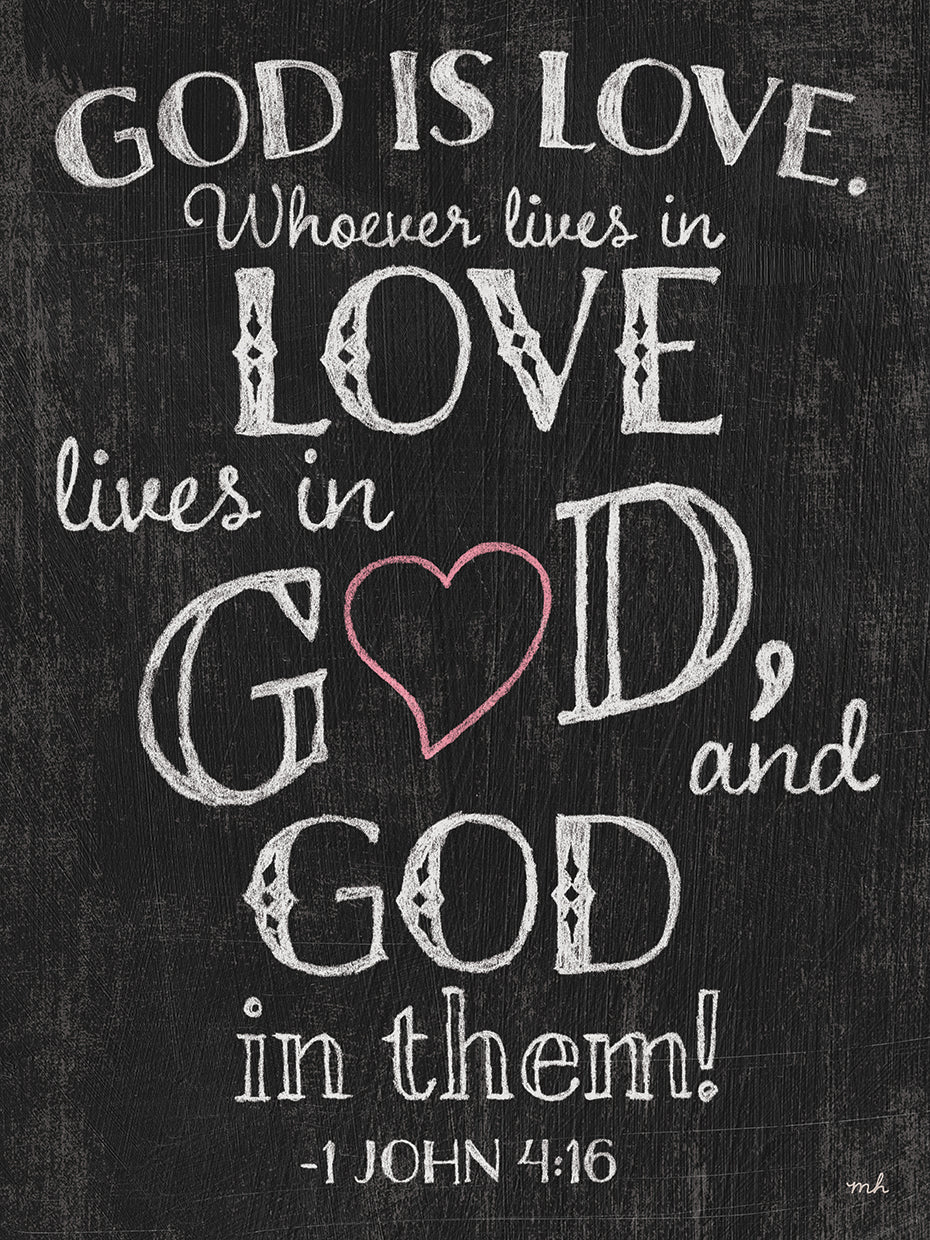 GOD IS LOVE.
Whoever lives in
LOVE
lives in
GOD,
and
GOD
in them!
-1 JOHN 4:16
mh